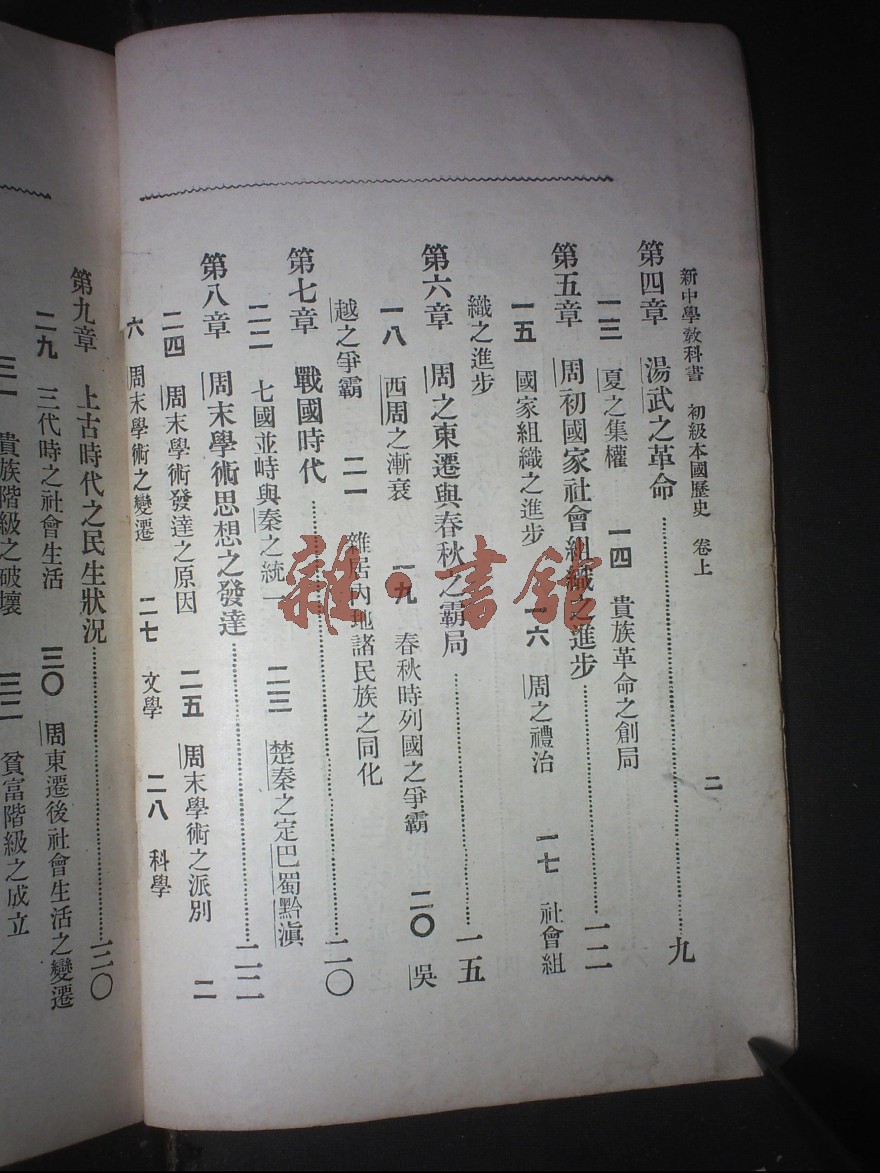 新中學敎科書　初級本國歷史　卷上
二
第四章　湯武之革命……九
一三　夏之集權　一四　貴族革命之創局
第五章　周初國家社會組織之進步……一二
一五　國家組織之進步　一六　周之禮治　一七　社會組
織之進步
第六章　周之東遷與春秋之霸局……一五
一八　西周之漸衰　一九　春秋時列國之爭霸　二〇　吳
越之爭霸　二一　雜居內地諸民族之同化
第七章　戰國時代……二〇
二二　七國並峙與秦之統一　二三　楚秦之定巴蜀黔滇
第八章　周末學術思想之發達……二二
二四　周末學術發達之原因　二五　周末學術之派別　二
六　周末學術之變遷　二七　文學　二八　科學
第九章　上古時代之民生狀況……三〇
二九　三代時之社會生活　三〇　周東遷後社會生活之變遷
三一　貴族階級之破壞　三二　貧富階級之成立
雜·書館